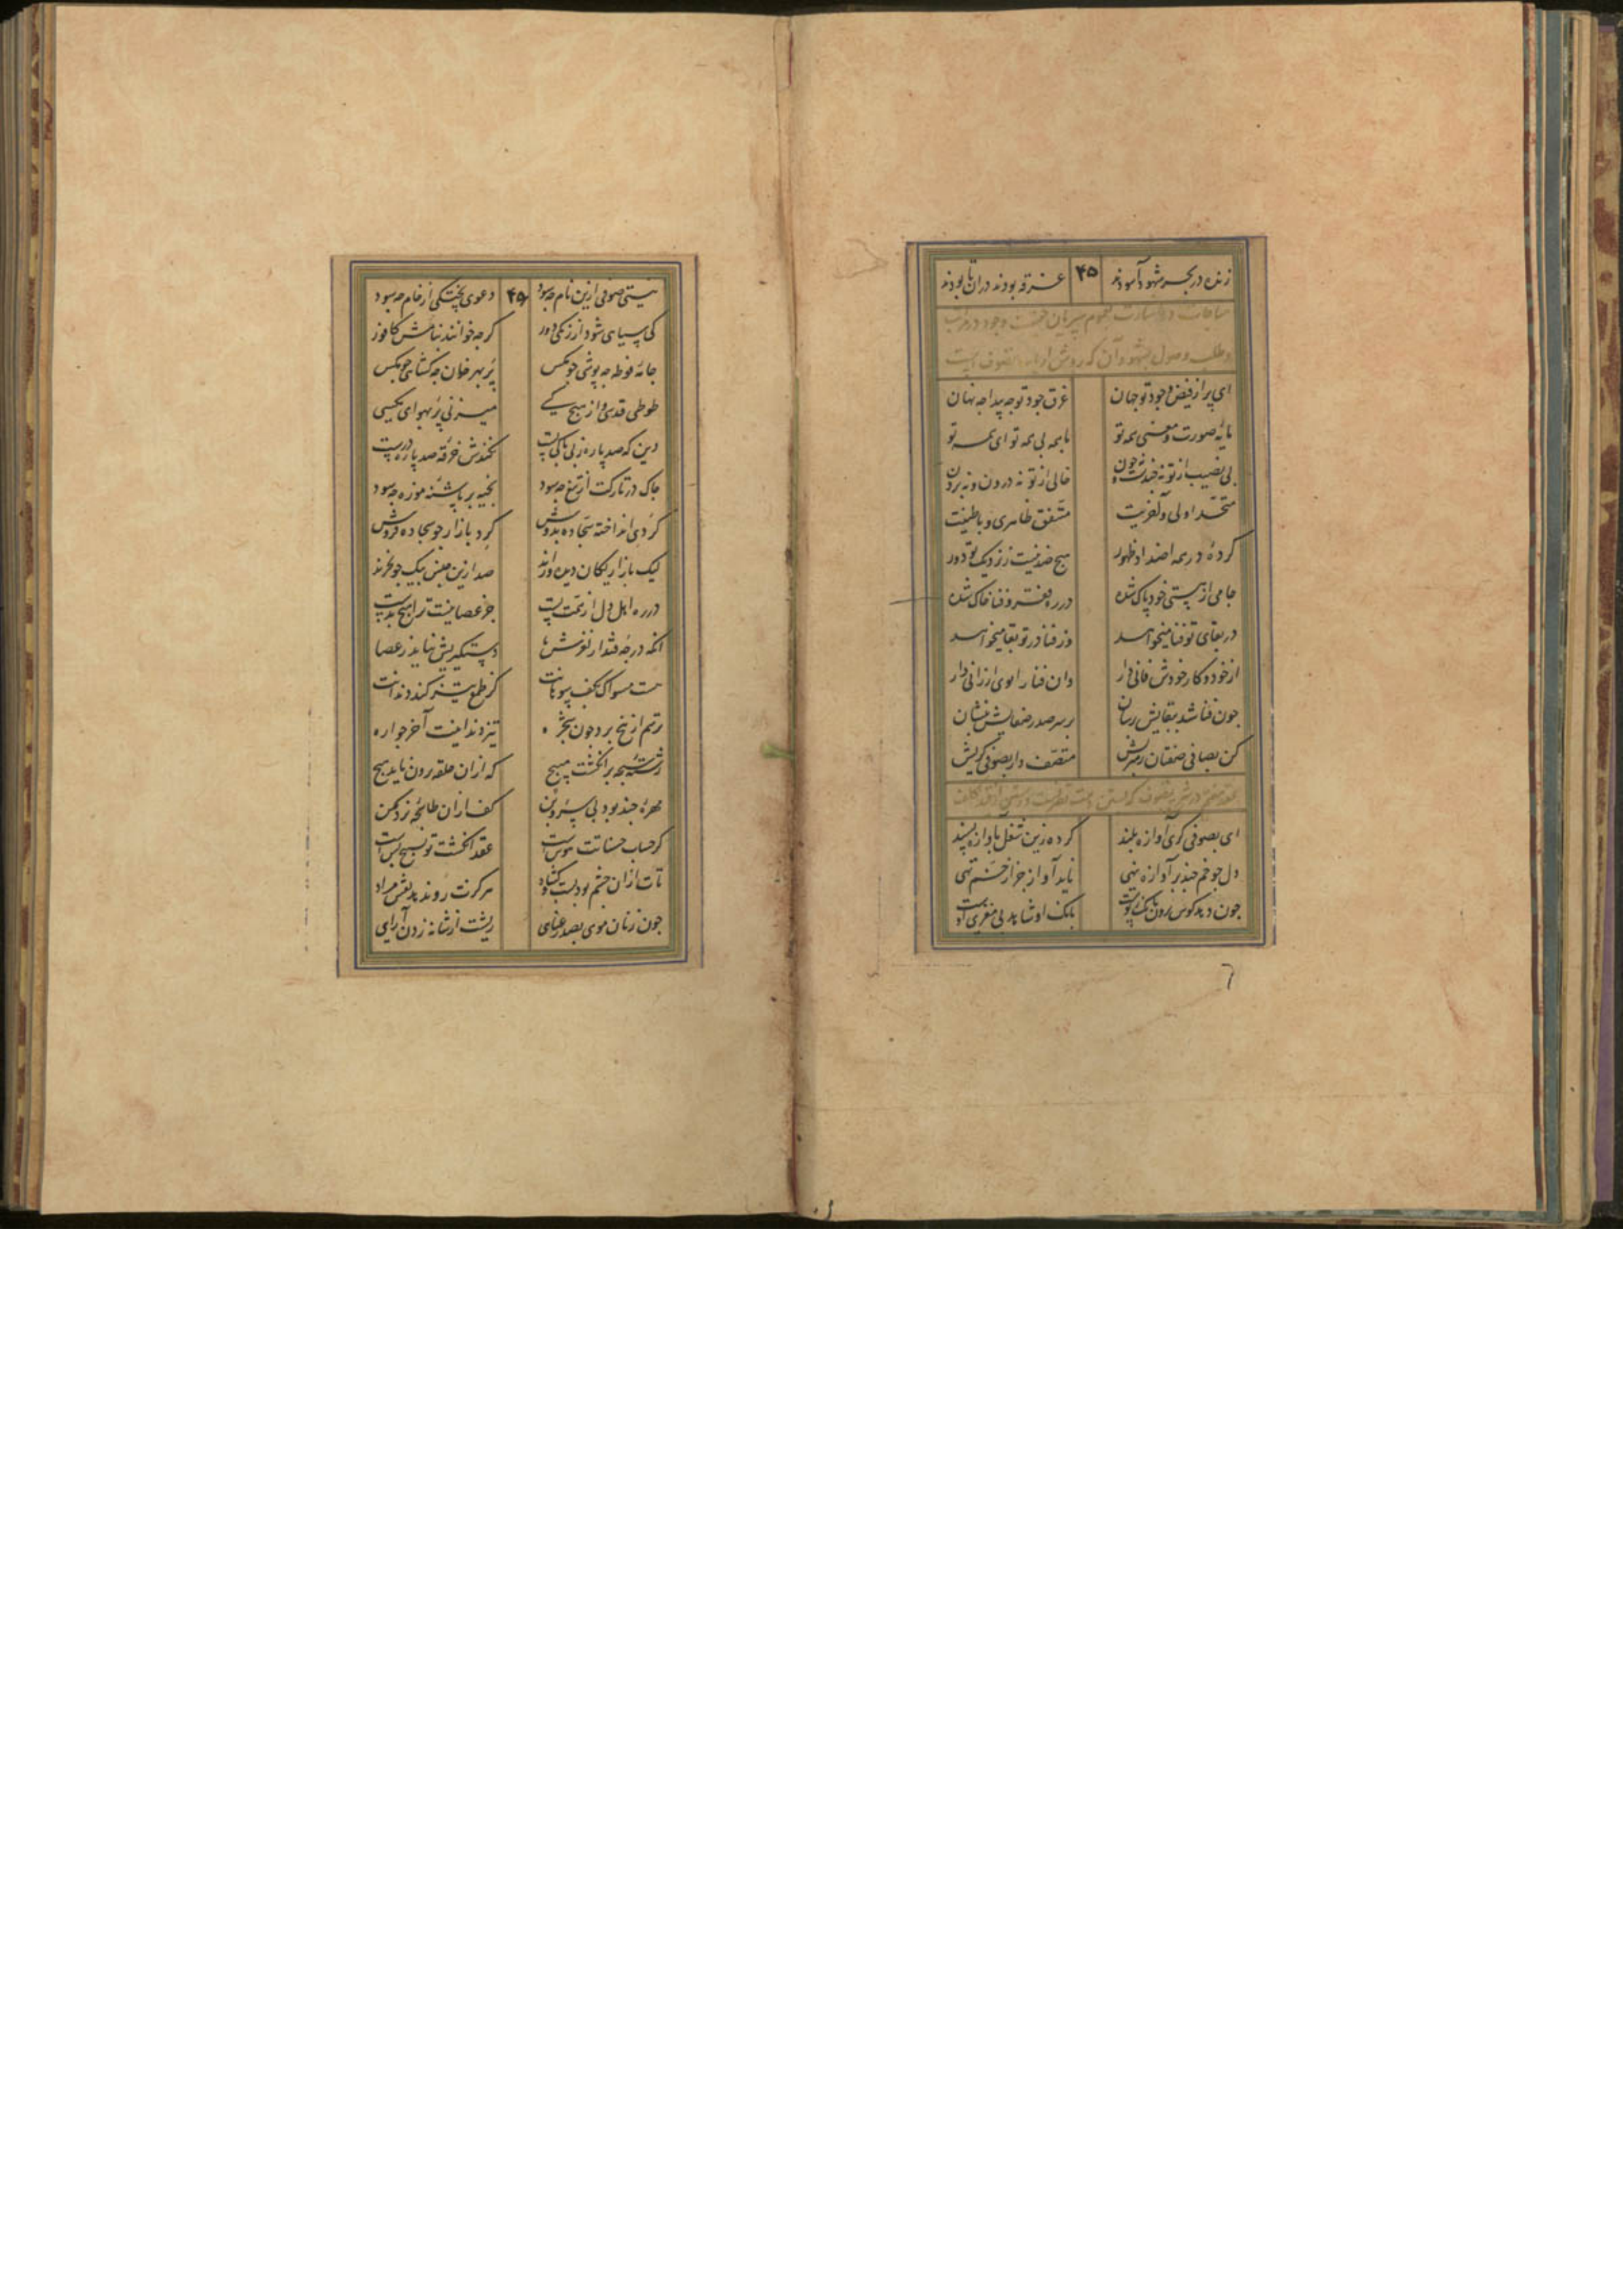 زنده در بحر شهود آسودند ۴۵ غرقه بودند در ان تا بودند
مناجات در اشارت بعموم سریان حقیقت وجود در مراتب
و طلب وصول بشهود آن که روش ارباب تصوف است
ای پر از فیض وجود تو جهان غرق جود تو چه پیدا چه نهان
مایه صورت و معنی همه تو با همه بی همه تو ای همه تو
بی نصیب از تو نه چندست و نه چون خالی از تو نه درون و نه برون
متحد اولی و آخریت متفق ظاهری و باطنیت
کردهٔ در همه اضداد ظهور هیچ ضد نیست ز نزدیک تو دور
جامی از هستی خود پاک شده در ره فقر و فنا خاک شده
در بقای تو فنا میخواهد وز فنا در تو بقا میخواهد
از خود و کار خودش فانی دار وان فنا را بوی ارزانی دار
چون فنا شد ببقایش رسان بر سر صدر صفایش بنشان
کن بصافی صفتان رهبریش متصف دار بصوفی گریش
عقد هفتم در شرح تصوف که
ای بصوفی گری آوازه بلند کرده زین شغل باوازه پسند
دل چو خم چند بر آوازه نهی ناید آواز جز از خم تهی
چون دهد کوس برون بانگ ز پوست بانگ او شاهد بی مغزی اوست
نیستی صوفی ازین نام چه سود ۴۶ دعوی پختگی از خام چه سود
کی سیاهی شود از زنگی دور گرچه خوانند بنامش کافور
جامهٔ فوطه چه پوشی چو مگس پر بهر خوان چه کشائی چو مگس
طوطی قدسی و از هیچ کسی میزنی پر بهوای مگسی
دین که صد پاره ز بی باکی تست نکندش خرقه صد پاره درست
چاک در تارکت از تیغ چه سود بخیه بر پاشنه موزه چه سود
گردی انداخته سجاده بدوش گرد بازار چو سجاده فروش
لیک بازاریکان دیده ورند صد ازین جنس بیک جو نخرند
در ره اهل دل از همت پست جز عصا نیست ترا هیچ بدست
انکه در چه فتد از لغزش پا دستگیریش نیاید ز عصا
هست مسواک بکف پیوسته گز طمع تیز کند دندانت
ترسم از بیخ برد چون شجره تیز دندانیت آخر چو اره
رشته سبحه بر انگشت مپیچ که از ان حلقه برون ناید هیچ
مهره چند بود بی سر و بن کف از ان طاینچه نرد مکن
گر حساب حسناتت هوس است عقد انگشت تو تسبیح بس است
تات از ان چشم بود بست و گشاد هرگزت رو ندهد نقش مراد
چون زنان موی بصد رعنایی ریشت از شانه زدن آرایی